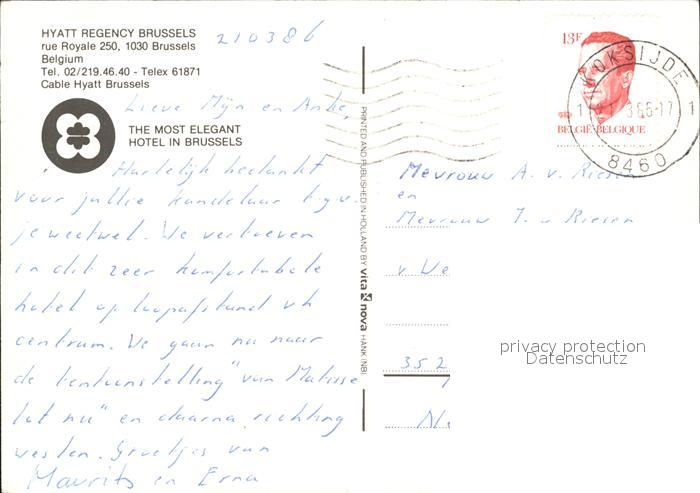 HYATT REGENCY BRUSSELS
rue Royale 250, 1030 Brussels
Belgium
Tel. 02/219.46.40 - Telex 61871
Cable Hyatt Brussels
210386
THE MOST ELEGANT
HOTEL IN BRUSSELS
Lieve Mijn en Anke,
Hartelijk bedankt
voor jullie
je weetwel. We vertoeven
in dit zeer komfortabele
hotel op loopafstand vh
centrum. We gaan nu naar
de tentoonstelling "van Matisse
tot nu" en daarna richting
westen. Groetjes van
Maurits en Erna
PRINTED AND PUBLISHED IN HOLLAND BY vita nova HANK (NB)
13F
BELGIË-BELGIQUE
KOKSIJDE
8460
Mevrouw A. v. Riesen
en
Mevrouw J. v Riesen
v We
352
privacy protection
Datenschutz